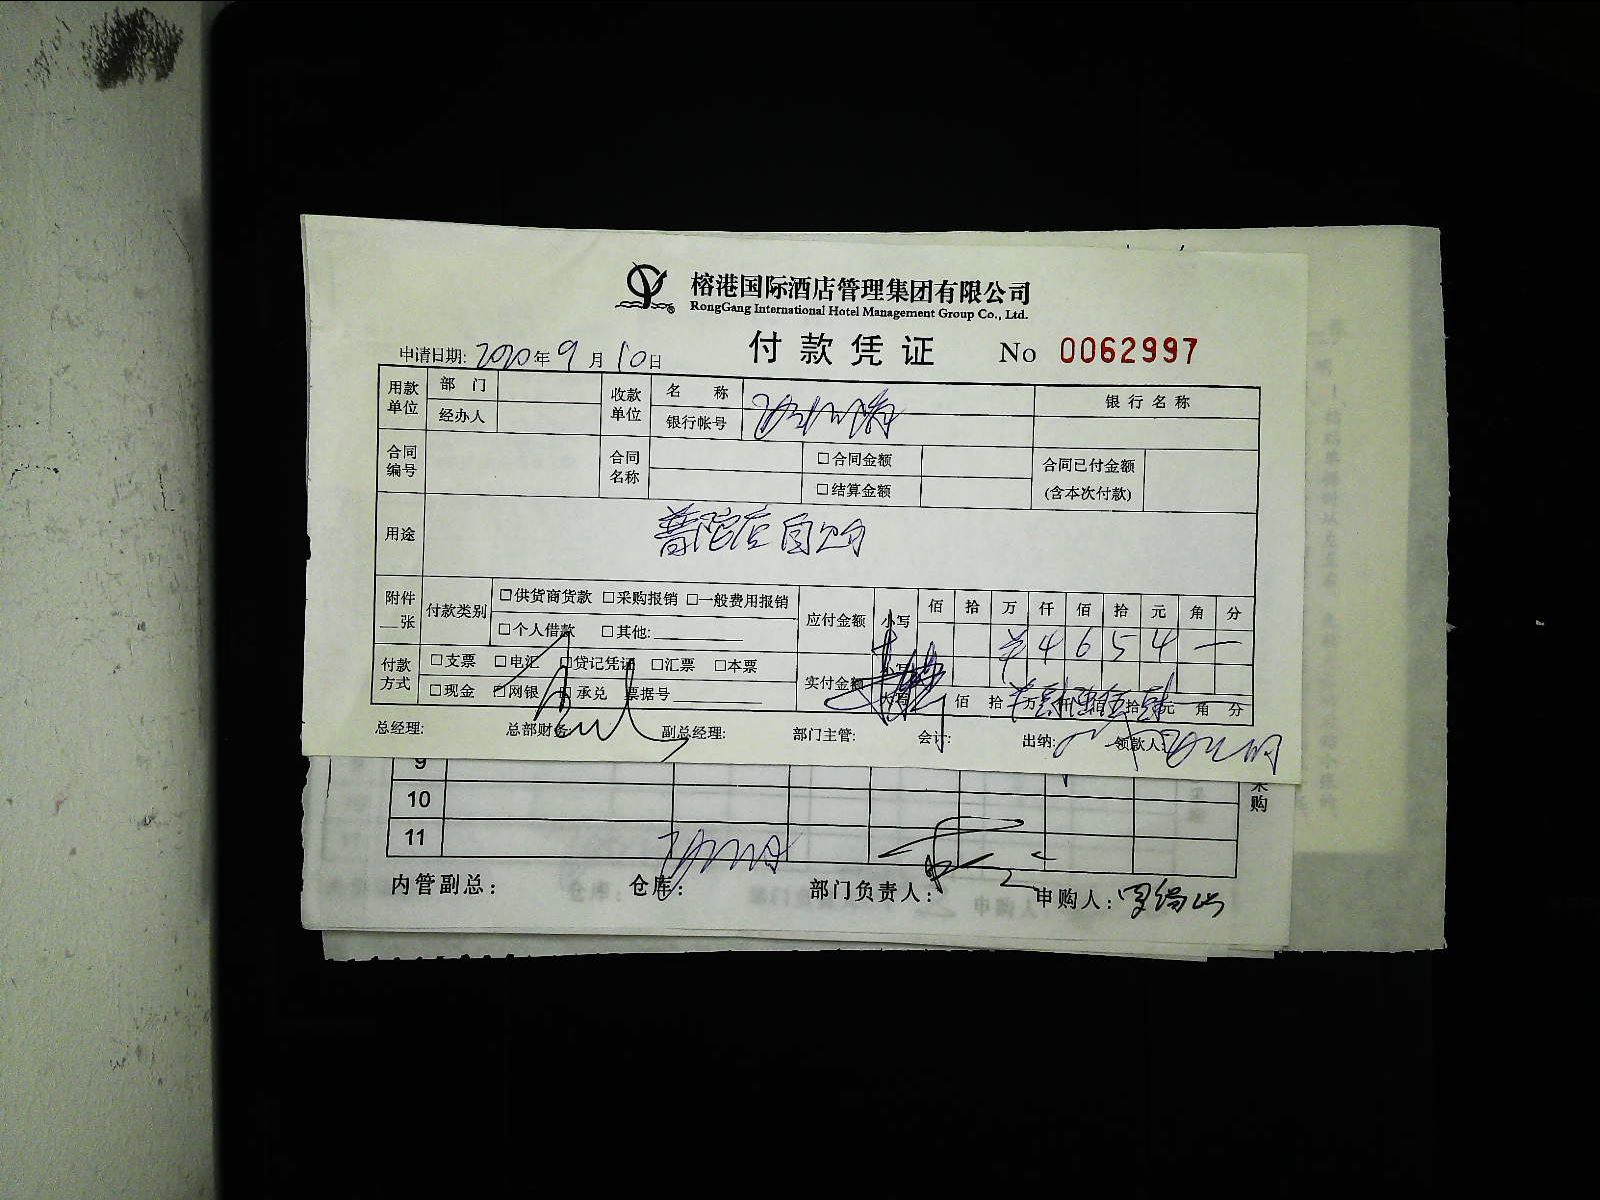 榕港国际酒店管理集团有限公司
RongGang International Hotel Management Group Co., Ltd.
付款凭证 No 0062997
申请日期: 2020年9月10日
用款单位 部门 收款单位 名称 银行名称
经办人 银行帐号
合同编号 合同名称 □合同金额 合同已付金额(含本次付款)
□结算金额
用途 普陀店自购
附件__张 付款类别 □供货商货款 □采购报销 □一般费用报销 应付金额 小写 佰 拾 万 仟 佰 拾 元 角 分
□个人借款 □其他: ¥ 4 6 5 4 —
付款方式 □支票 □电汇 □贷记凭证 □汇票 □本票 实付金额 小写
□现金 □网银 □承兑 票据号 大写 佰 拾 万 仟 佰 拾 元 角 分
总经理: 总部财务: 副总经理: 部门主管: 会计: 出纳: 领款人:
9
10
11
采购
内管副总: 仓库: 部门负责人: 申购人: